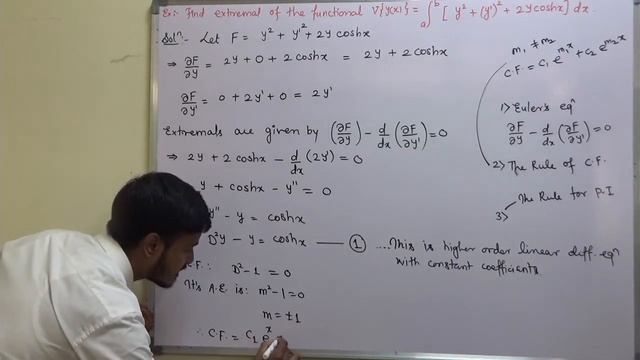 Ex:- Find extremal of the functional V{y(x)} = ∫ₐᵇ [ y² + (y')² + 2y coshx ] dx.
Solⁿ:- Let F = y² + y'² + 2y coshx
⇒ ∂F/∂y = 2y + 0 + 2 coshx = 2y + 2 coshx
∂F/∂y' = 0 + 2y' + 0 = 2y'
Extremals are given by (∂F/∂y) - d/dx (∂F/∂y') = 0
⇒ 2y + 2 coshx - d/dx (2y') = 0
y + coshx - y'' = 0
y'' - y = coshx
D²y - y = coshx —— ① ....This is higher order linear diff. eqⁿ
with constant coefficients
.F.: D² - 1 = 0
It's A.E. is: m² - 1 = 0
m = ±1
∴ C.F. = C₁ eˣ
m₁ ≠ m₂
C.F. = C₁ e^{m₁x} + C₂ e^{m₂x}
1) Euler's eqⁿ
∂F/∂y - d/dx (∂F/∂y') = 0
2) The Rule of C.F.
3) The Rule for P.I